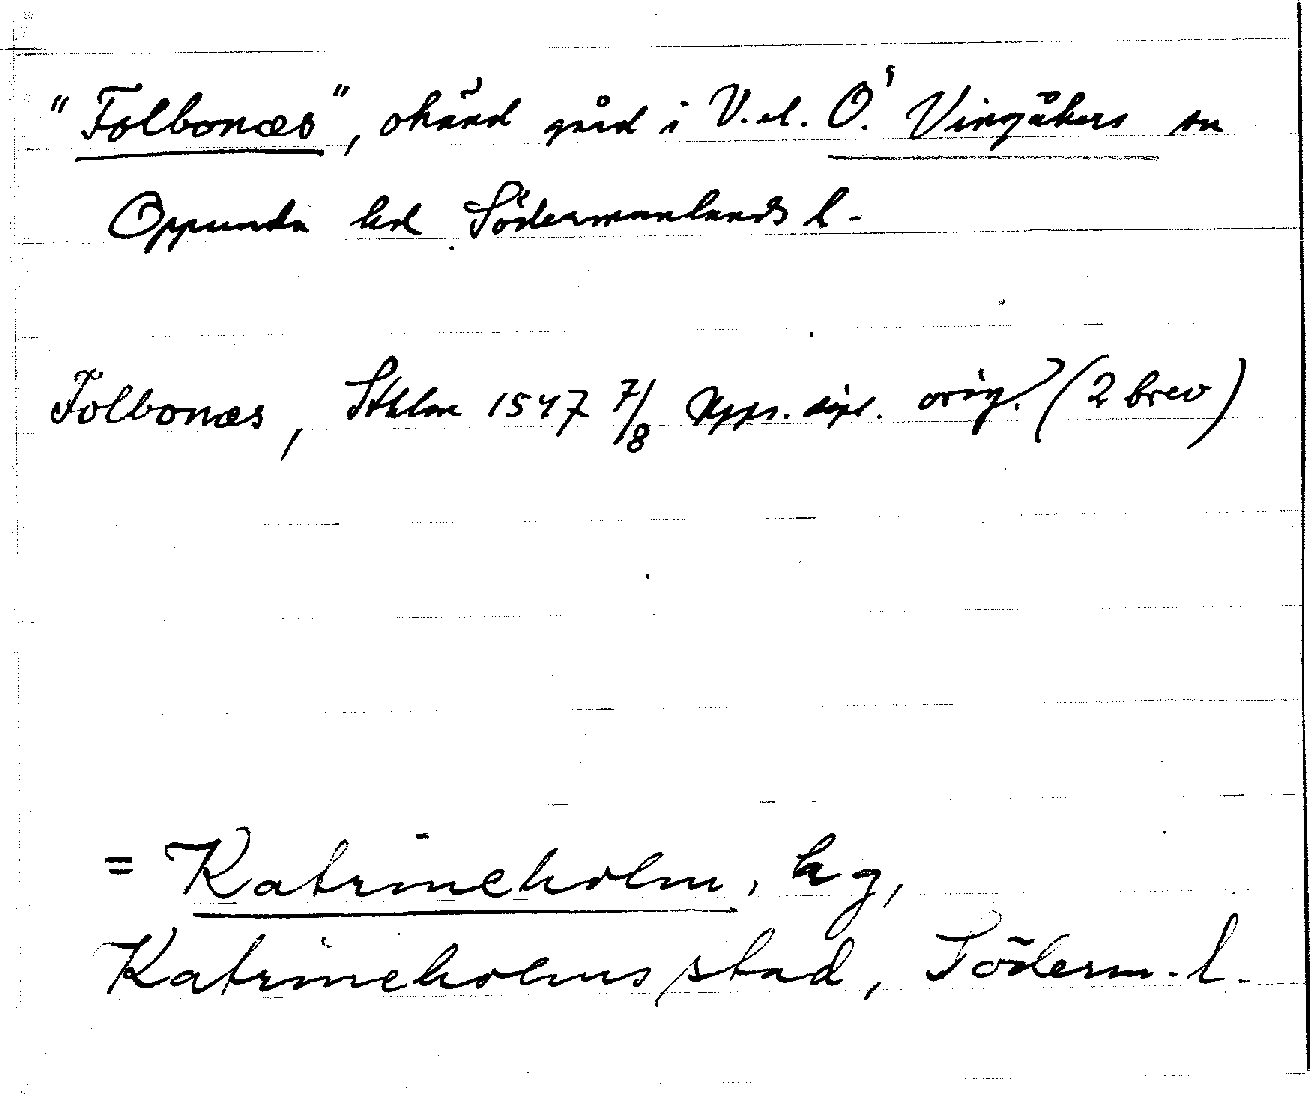 "Folbonæs", okänd gård i V. el. Ö. Vingåkers sn
Oppunda hd Södermanlands l.
Folbonæs, Sthlm 1547 7/8 Upps. dipl. orig.? (2 brev)
= Katrineholm, hg,
Katrineholms stad, Söderm. l.